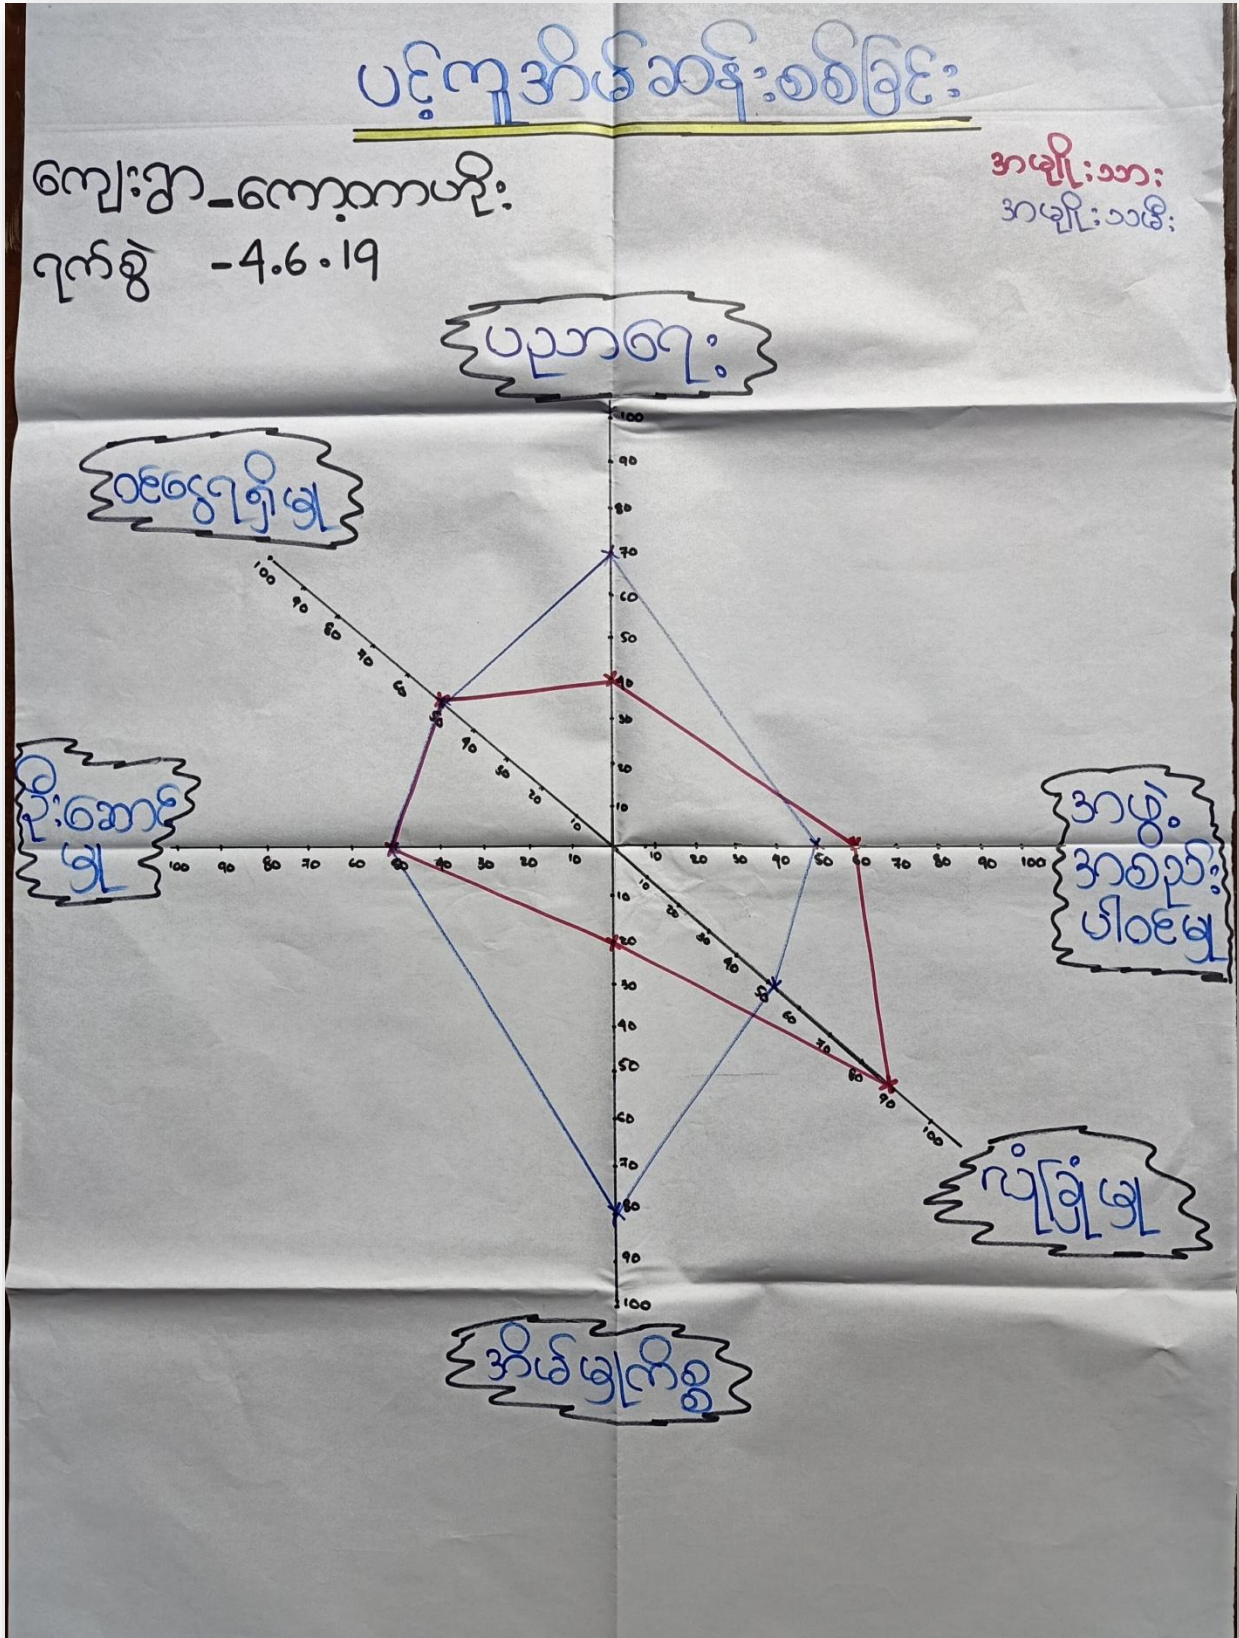 ပင့်ကူအိမ်ဆန်းစစ်ခြင်း
ကျေးရွာ - ကော့ကာဟိုး
ရက်စွဲ - 4.6.19
အမျိုးသား
အမျိုးသမီး
ပညာရေး
ဝင်ငွေရရှိမှု
ဦးဆောင်
မှု
အဖွဲ့
အစည်း
ပါဝင်မှု
လုံခြုံမှု
အိမ်မှုကိစ္စ
100
90
80
70
60
50
40
30
20
10
100
90
80
70
60
50
40
30
20
10
100 90 80 70 60 50 40 30 20 10
10 20 30 40 50 60 70 80 90 100
10
20
30
40
50
60
70
80
90
100
10
20
30
40
50
60
70
80
90
100